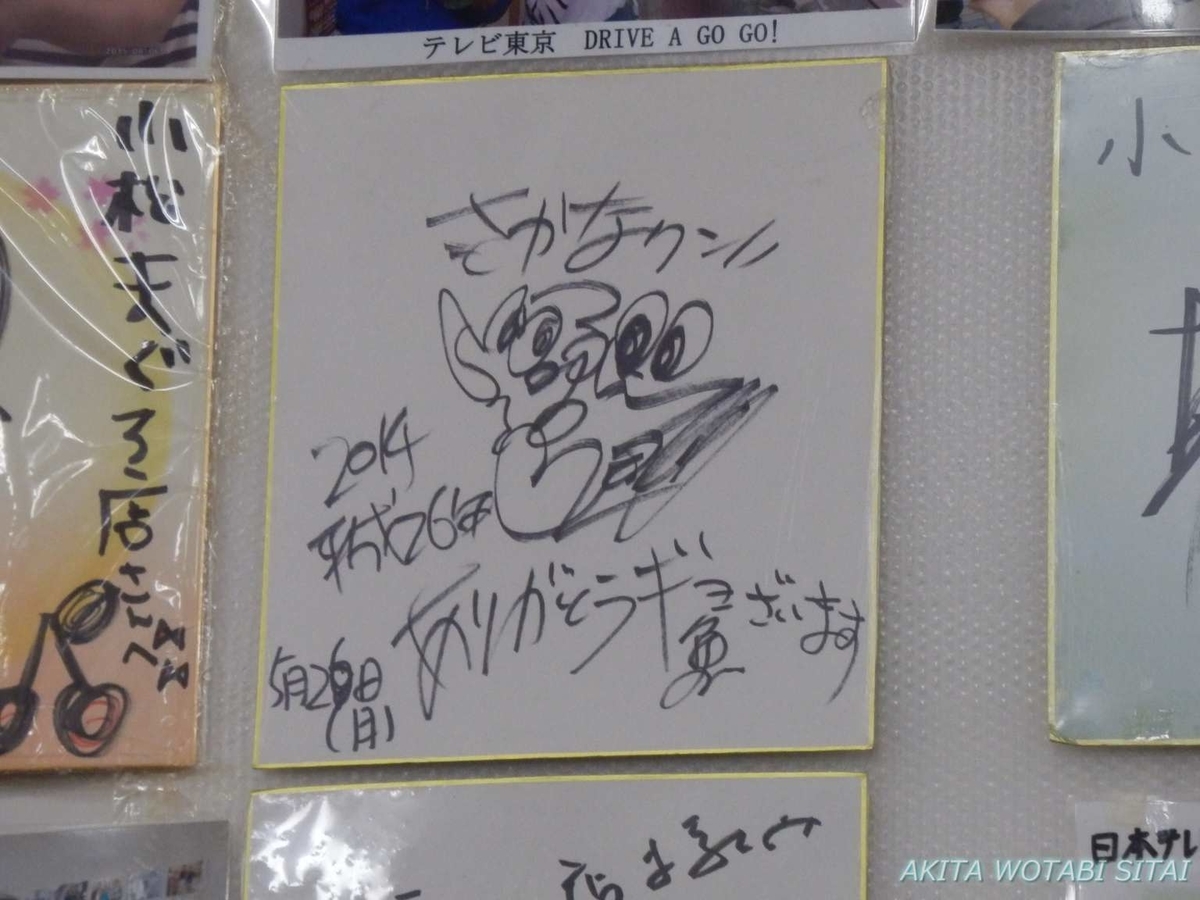 テレビ東京 DRIVE A GO GO!
小松まぐろ店さんへ
さかなクン
2014
平成26年
5月26日
(月)
ありがとうギョ魚ざいます
小
日本テレ
AKITA WOTABI SITAI